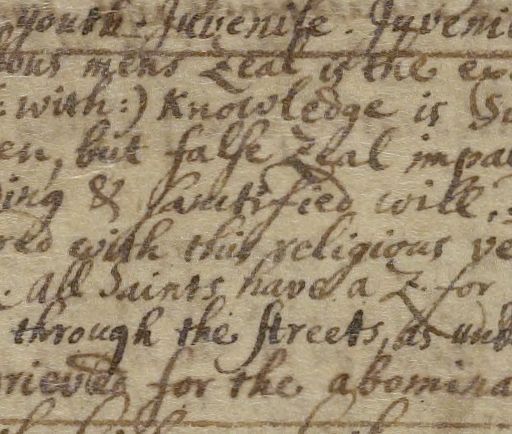 youth. Juvenile. Juveni
ous mens Zeal is the ex
: with:) Knowledge is So
en, but false Zeal impa
ing & sanctified will,
red with this religious ve
. All Saints have a Z. for
through the streets, as unb
rieved for the abomina